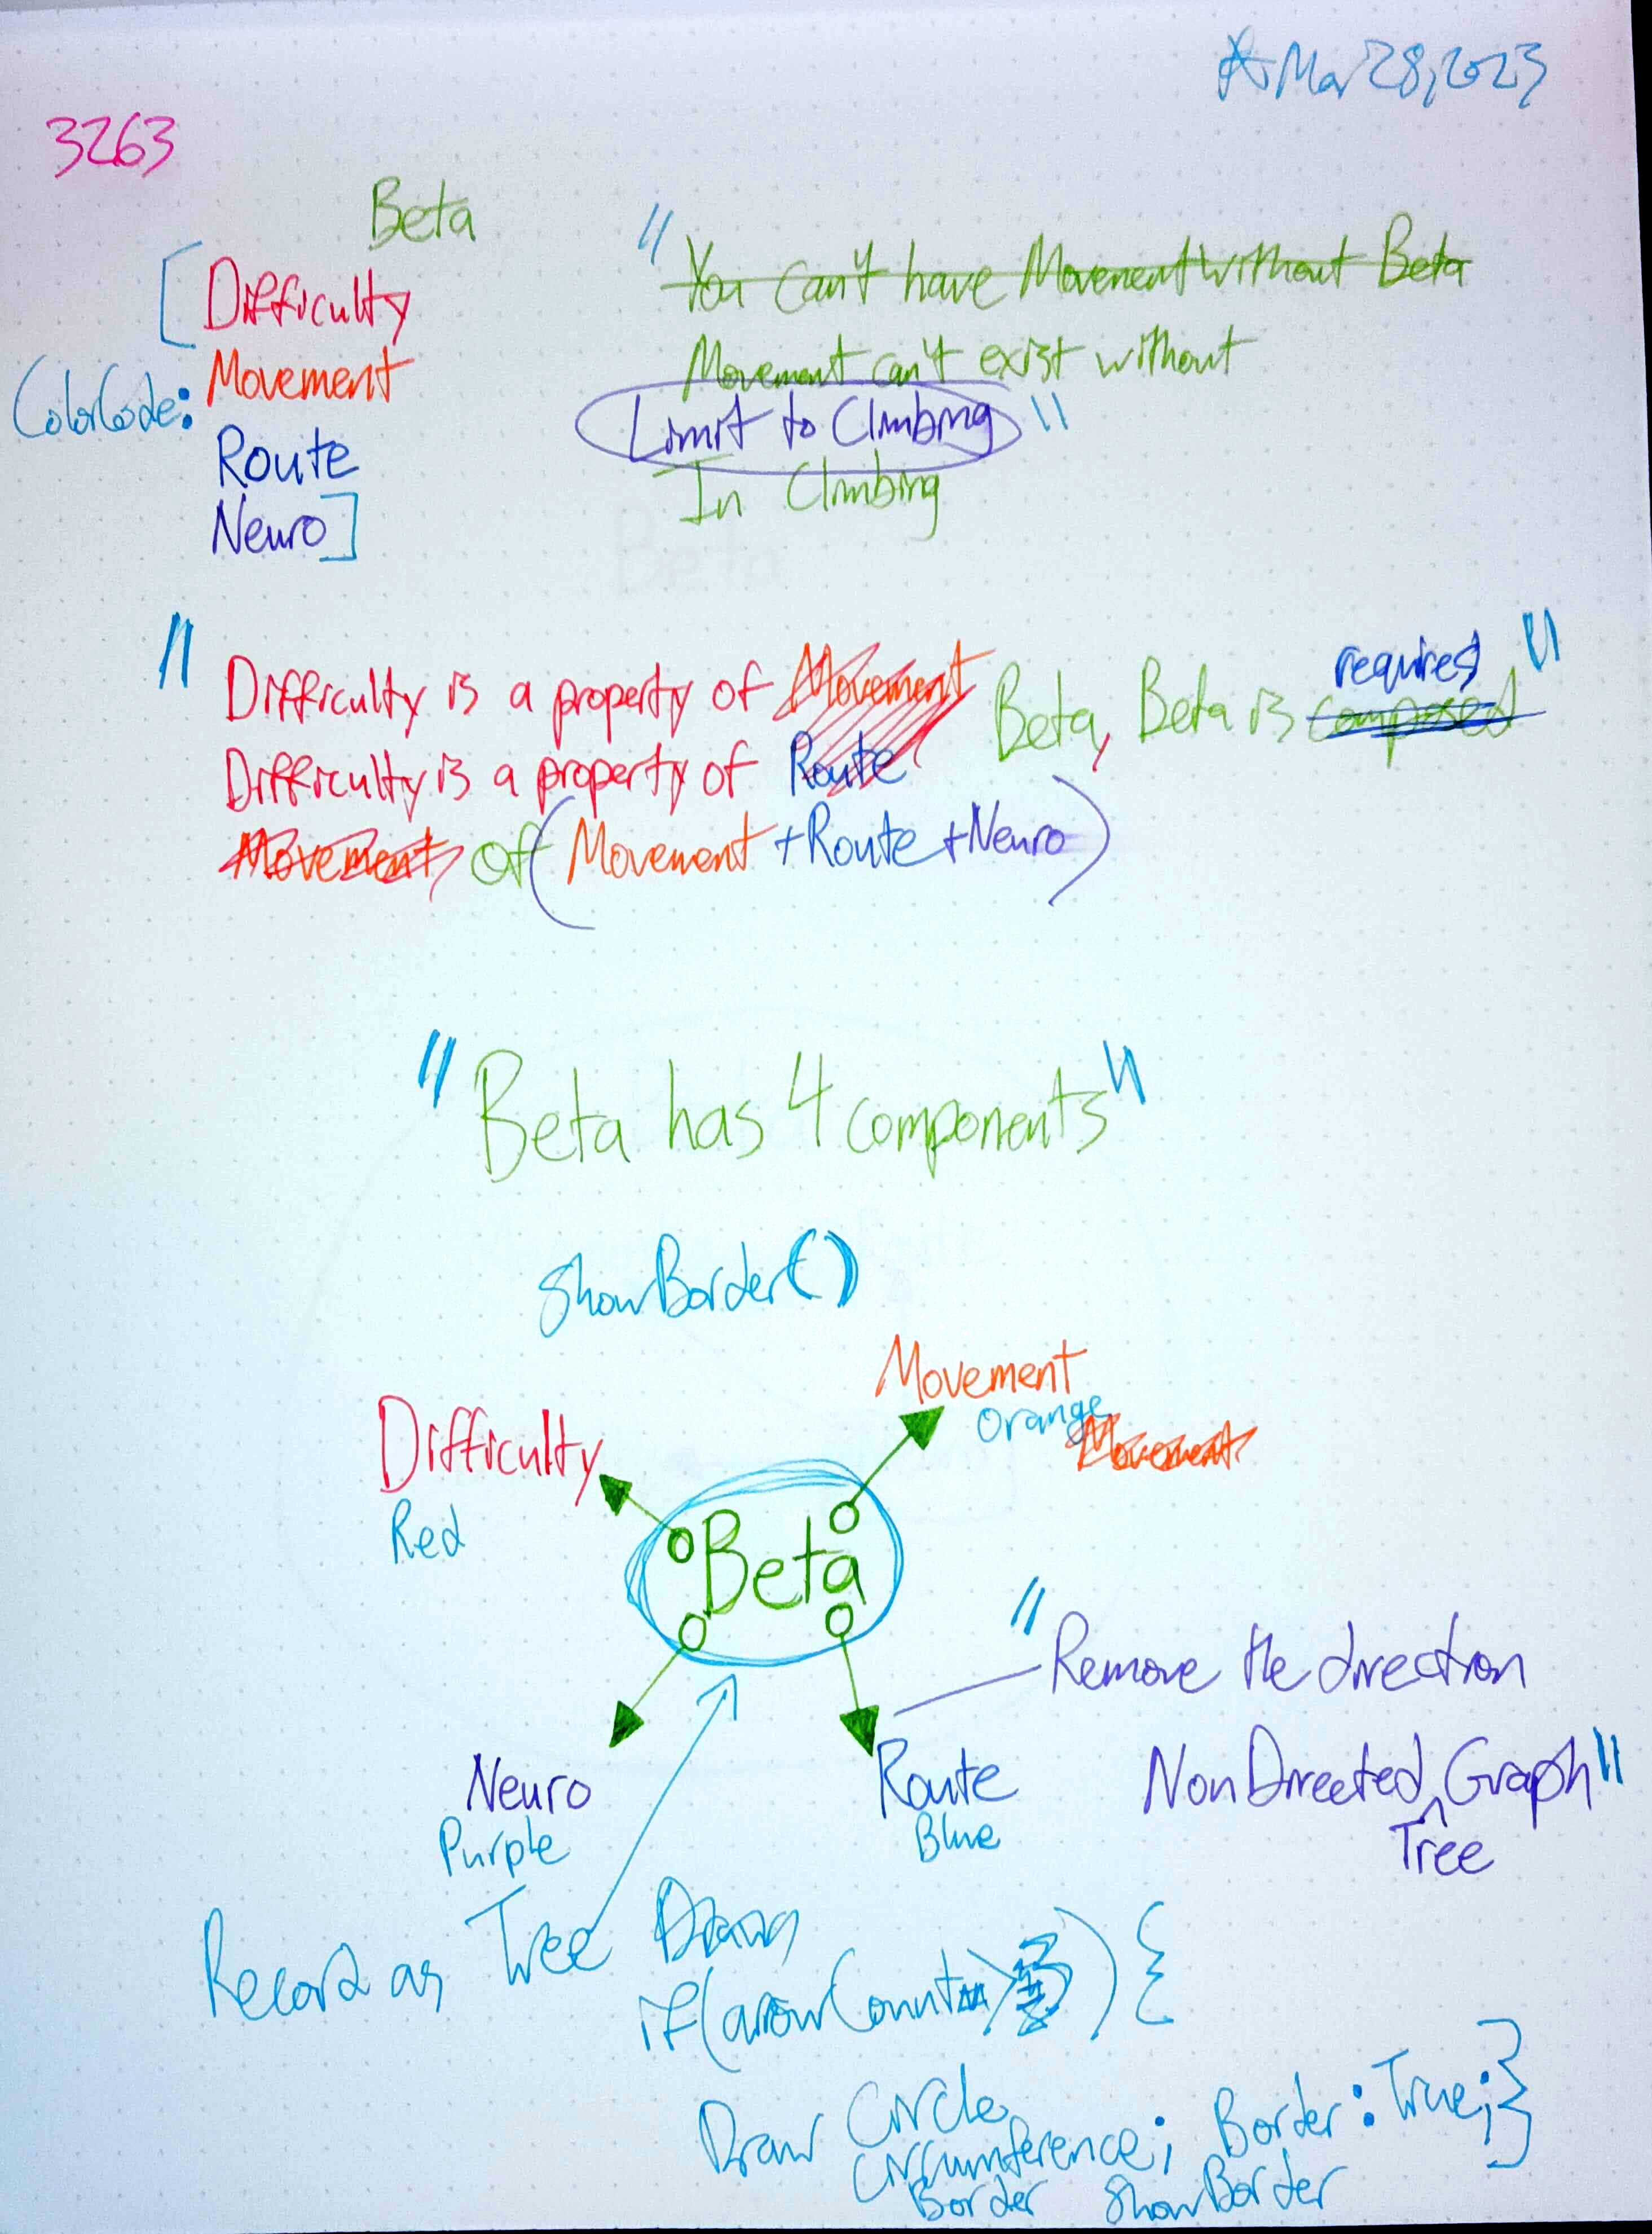 Mar 28, 2023
3263
Beta
[Difficulty
ColorCode: Movement
Route
Neuro]
"You can't have Movement without Beta
Movement can't exist without
Limit to Climbing"
In Climbing
"Difficulty is a property of Movement Beta, Beta is composed requires"
Difficulty is a property of Route
Movement, of (Movement + Route + Neuro)
"Beta has 4 components"
ShowBorder()
Movement
Orange
Movement
Difficulty
Red
Beta
"Remove the direction
NonDirected Tree Graph"
Neuro
Purple
Route
Blue
Record as Tree
if(arrowCount > 3) {
Draw Circle
Circumference; Border: True;}
Border ShowBorder